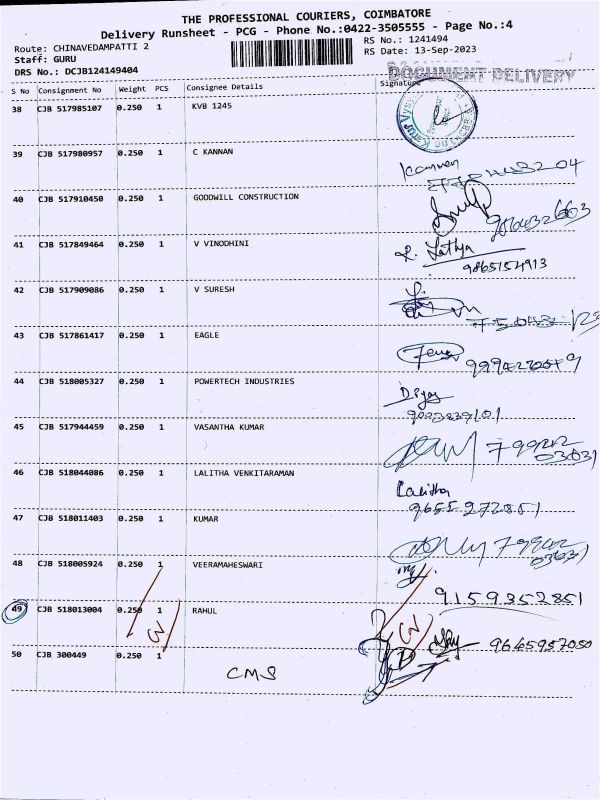 THE PROFESSIONAL COURIERS, COIMBATORE
Delivery Runsheet - PCG - Phone No.:0422-3505555 - Page No.:4
Route: CHINAVEDAMPATTI 2
RS No.: 1241494
Staff: GURU
RS Date: 13-Sep-2023
DRS No.: DCJB124149404
DOCUMENT DELIVERY
S No Consignment No Weight PCS Consignee Details Signature
38 CJB 517985107 0.250 1 KVB 1245
39 CJB 517980957 0.250 1 C KANNAN
Kannan
40 CJB 517910450 0.250 1 GOODWILL CONSTRUCTION
41 CJB 517849464 0.250 1 V VINODHINI
R. Sathya
9865154913
42 CJB 517909086 0.250 1 V SURESH
43 CJB 517861417 0.250 1 EAGLE
44 CJB 518005327 0.250 1 POWERTECH INDUSTRIES
45 CJB 517944459 0.250 1 VASANTHA KUMAR
79942
03631
46 CJB 518044086 0.250 1 LALITHA VENKITARAMAN
Lalitha
9655272851
47 CJB 518011403 0.250 1 KUMAR
79942
03631
48 CJB 518005924 0.250 1 VEERAMAHESWARI
9159352851
49 CJB 518013004 0.250 1 RAHUL
9645957050
50 CJB 300449 0.250 1
CMS